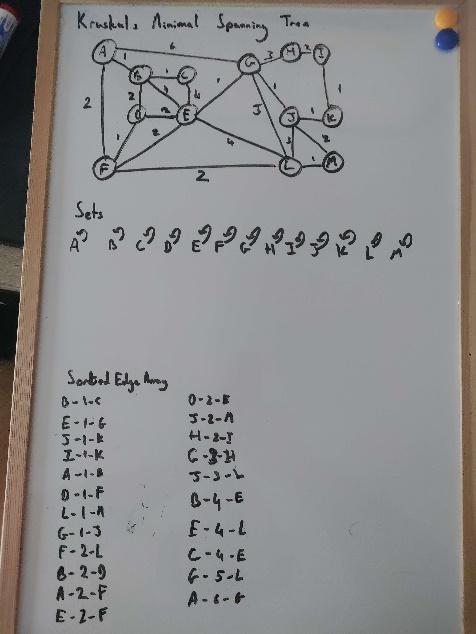 Kruskals Minimal Spanning Tree
A 6 G 3 H 2 I
1
B 1 C 1 1 1
2 2 3 4 J 1 K
D 2 E 5
1 2 4 3 2
F 2 L 1 M
Sets
A B C D E F G H I J K L M
Sorted Edge Array
B-1-C
E-1-G
J-1-K
I-1-K
A-1-B
D-1-F
L-1-M
G-1-J
F-2-L
B-2-D
A-2-F
E-2-F
D-2-E
J-2-M
H-2-I
G-3-H
J-3-L
B-4-E
E-4-L
C-4-E
G-5-L
A-6-G